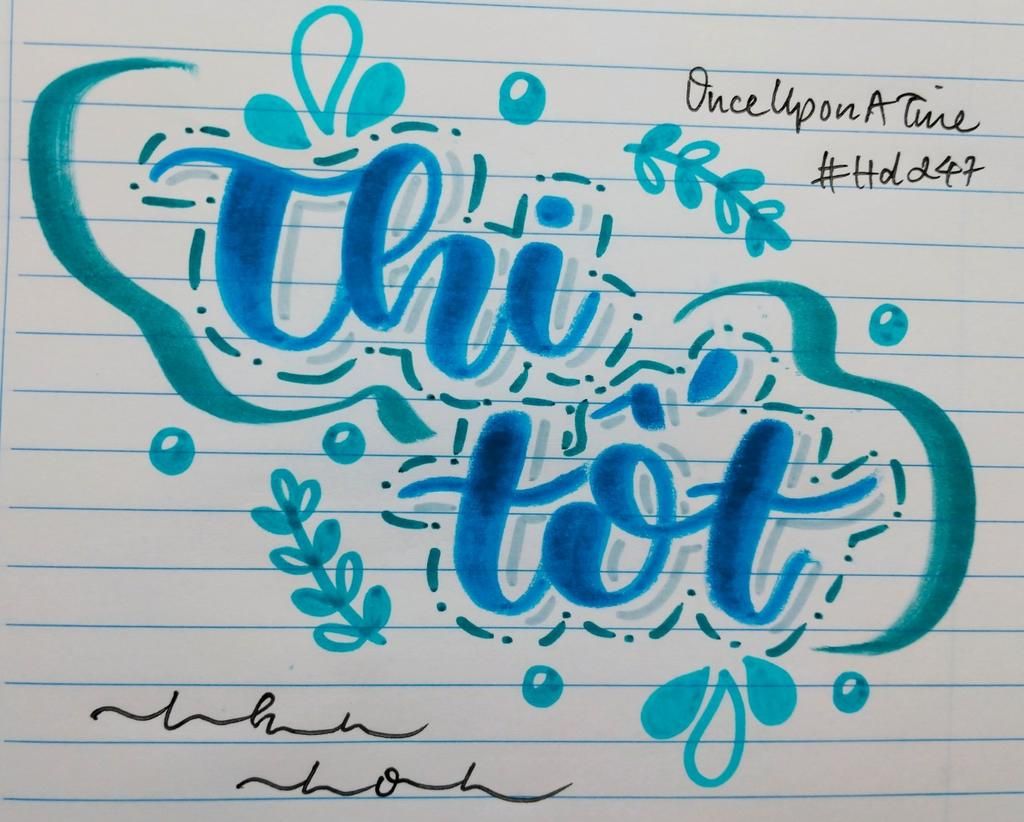 OnceUponATime
#Hd247
thi
tốt